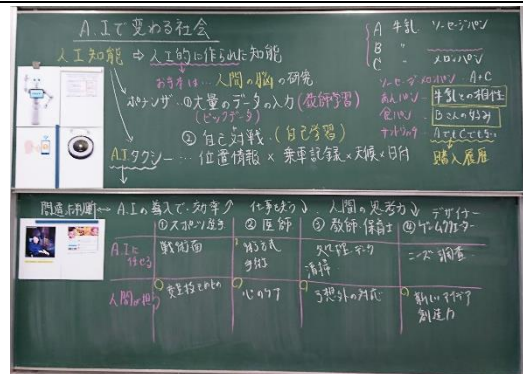 A.Iで変わる社会
人工知能 ⇨ 人工的に作られた知能
お手本は… 人間の脳の研究
ポナンザ … ①大量のデータの入力(教師学習)
(ビッグデータ)
② 自己対戦 (自己学習)
A.Iタクシー … 位置情報 × 乗車記録 × 天候 × 日付
A 牛乳 ソーセージパン
B 〃
C 〃 メロンパン
ソーセージメロンパン A+C
あんパン
食パン
牛乳との相性
Bさんの好み
AでもCでもない
購入履歴
A.Iの導入で効率↑ 仕事を失う↓ 人間の思考力↓
①スポーツ選手 ②医師 ③教師・保育士 ④デザイナー
ゲームクリエーター
A.Iに任せる 戦術面 手術 ニーズ調査
人間が担う 心のケア 予想外の対応 新しいアイデア
創造力